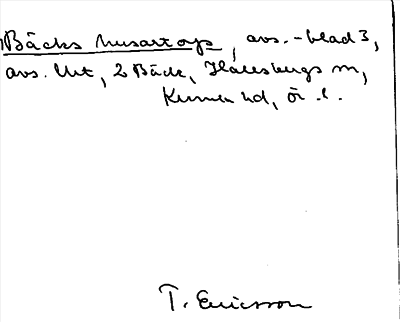 Bäcks husartorp, avs.-blad 3,
avs. Ut, 2 Bäck, Hällesbergs m,
Kumla hd, Ör.l.
T. Ericsson